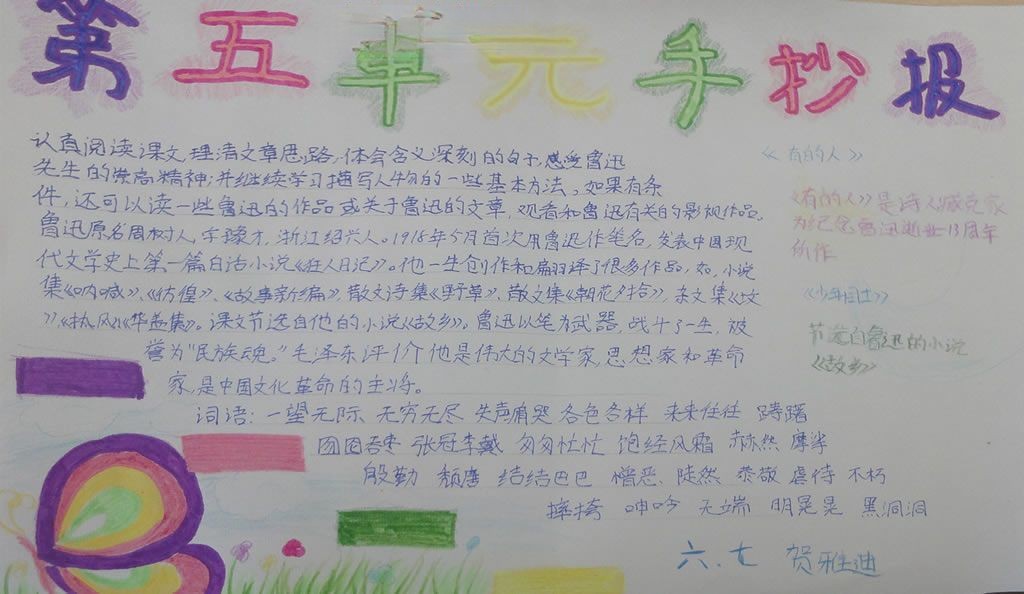 第五单元手抄报
认真阅读课文,理清文章思路,体会含义深刻的句子,感受鲁迅
先生的崇高精神;并继续学习描写人物的一些基本方法。如果有条
件,还可以读一些鲁迅的作品或关于鲁迅的文章,观看和鲁迅有关的影视作品。
鲁迅原名周树人,字豫才,浙江绍兴人。1918年5月首次用鲁迅作笔名,发表中国现
代文学史上第一篇白话小说《狂人日记》。他一生创作和翻译了很多作品,如,小说
集《呐喊》、《彷徨》、《故事新编》,散文诗集《野草》、散文集《朝花夕拾》,杂文集《坟
》,《热风》《华盖集》。课文节选自他的小说《故乡》。鲁迅以笔为武器,战斗了一生,被
誉为“民族魂。”毛泽东评价他是伟大的文学家,思想家和革命
家,是中国文化革命的主将。
词语:一望无际 无穷无尽 失声痛哭 各色各样 来来往往 踌躇
囫囵吞枣 张冠李戴 匆匆忙忙 饱经风霜 赫然 摩挲
殷勤 颓唐 结结巴巴 憎恶 陡然 恭敬 虐待 不朽
呻吟 无端 明晃晃 黑洞洞
六.七 贺雅迪
《有的人》
《有的人》是诗人臧克家
为纪念鲁迅逝世13周年
所作
《少年闰土》
节选自鲁迅的小说
《故乡》